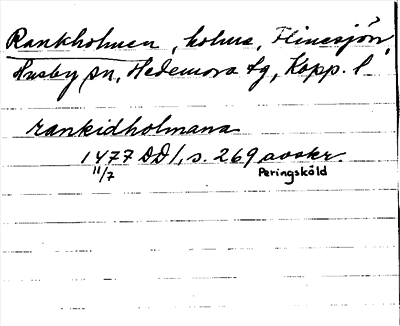 Rankholmen, holme, Flinesjön,
Husby sn, Hedemora tg, Kopp. l
rankidholmana
1477 DD1, s. 269 avskr.
11/7 Peringsköld